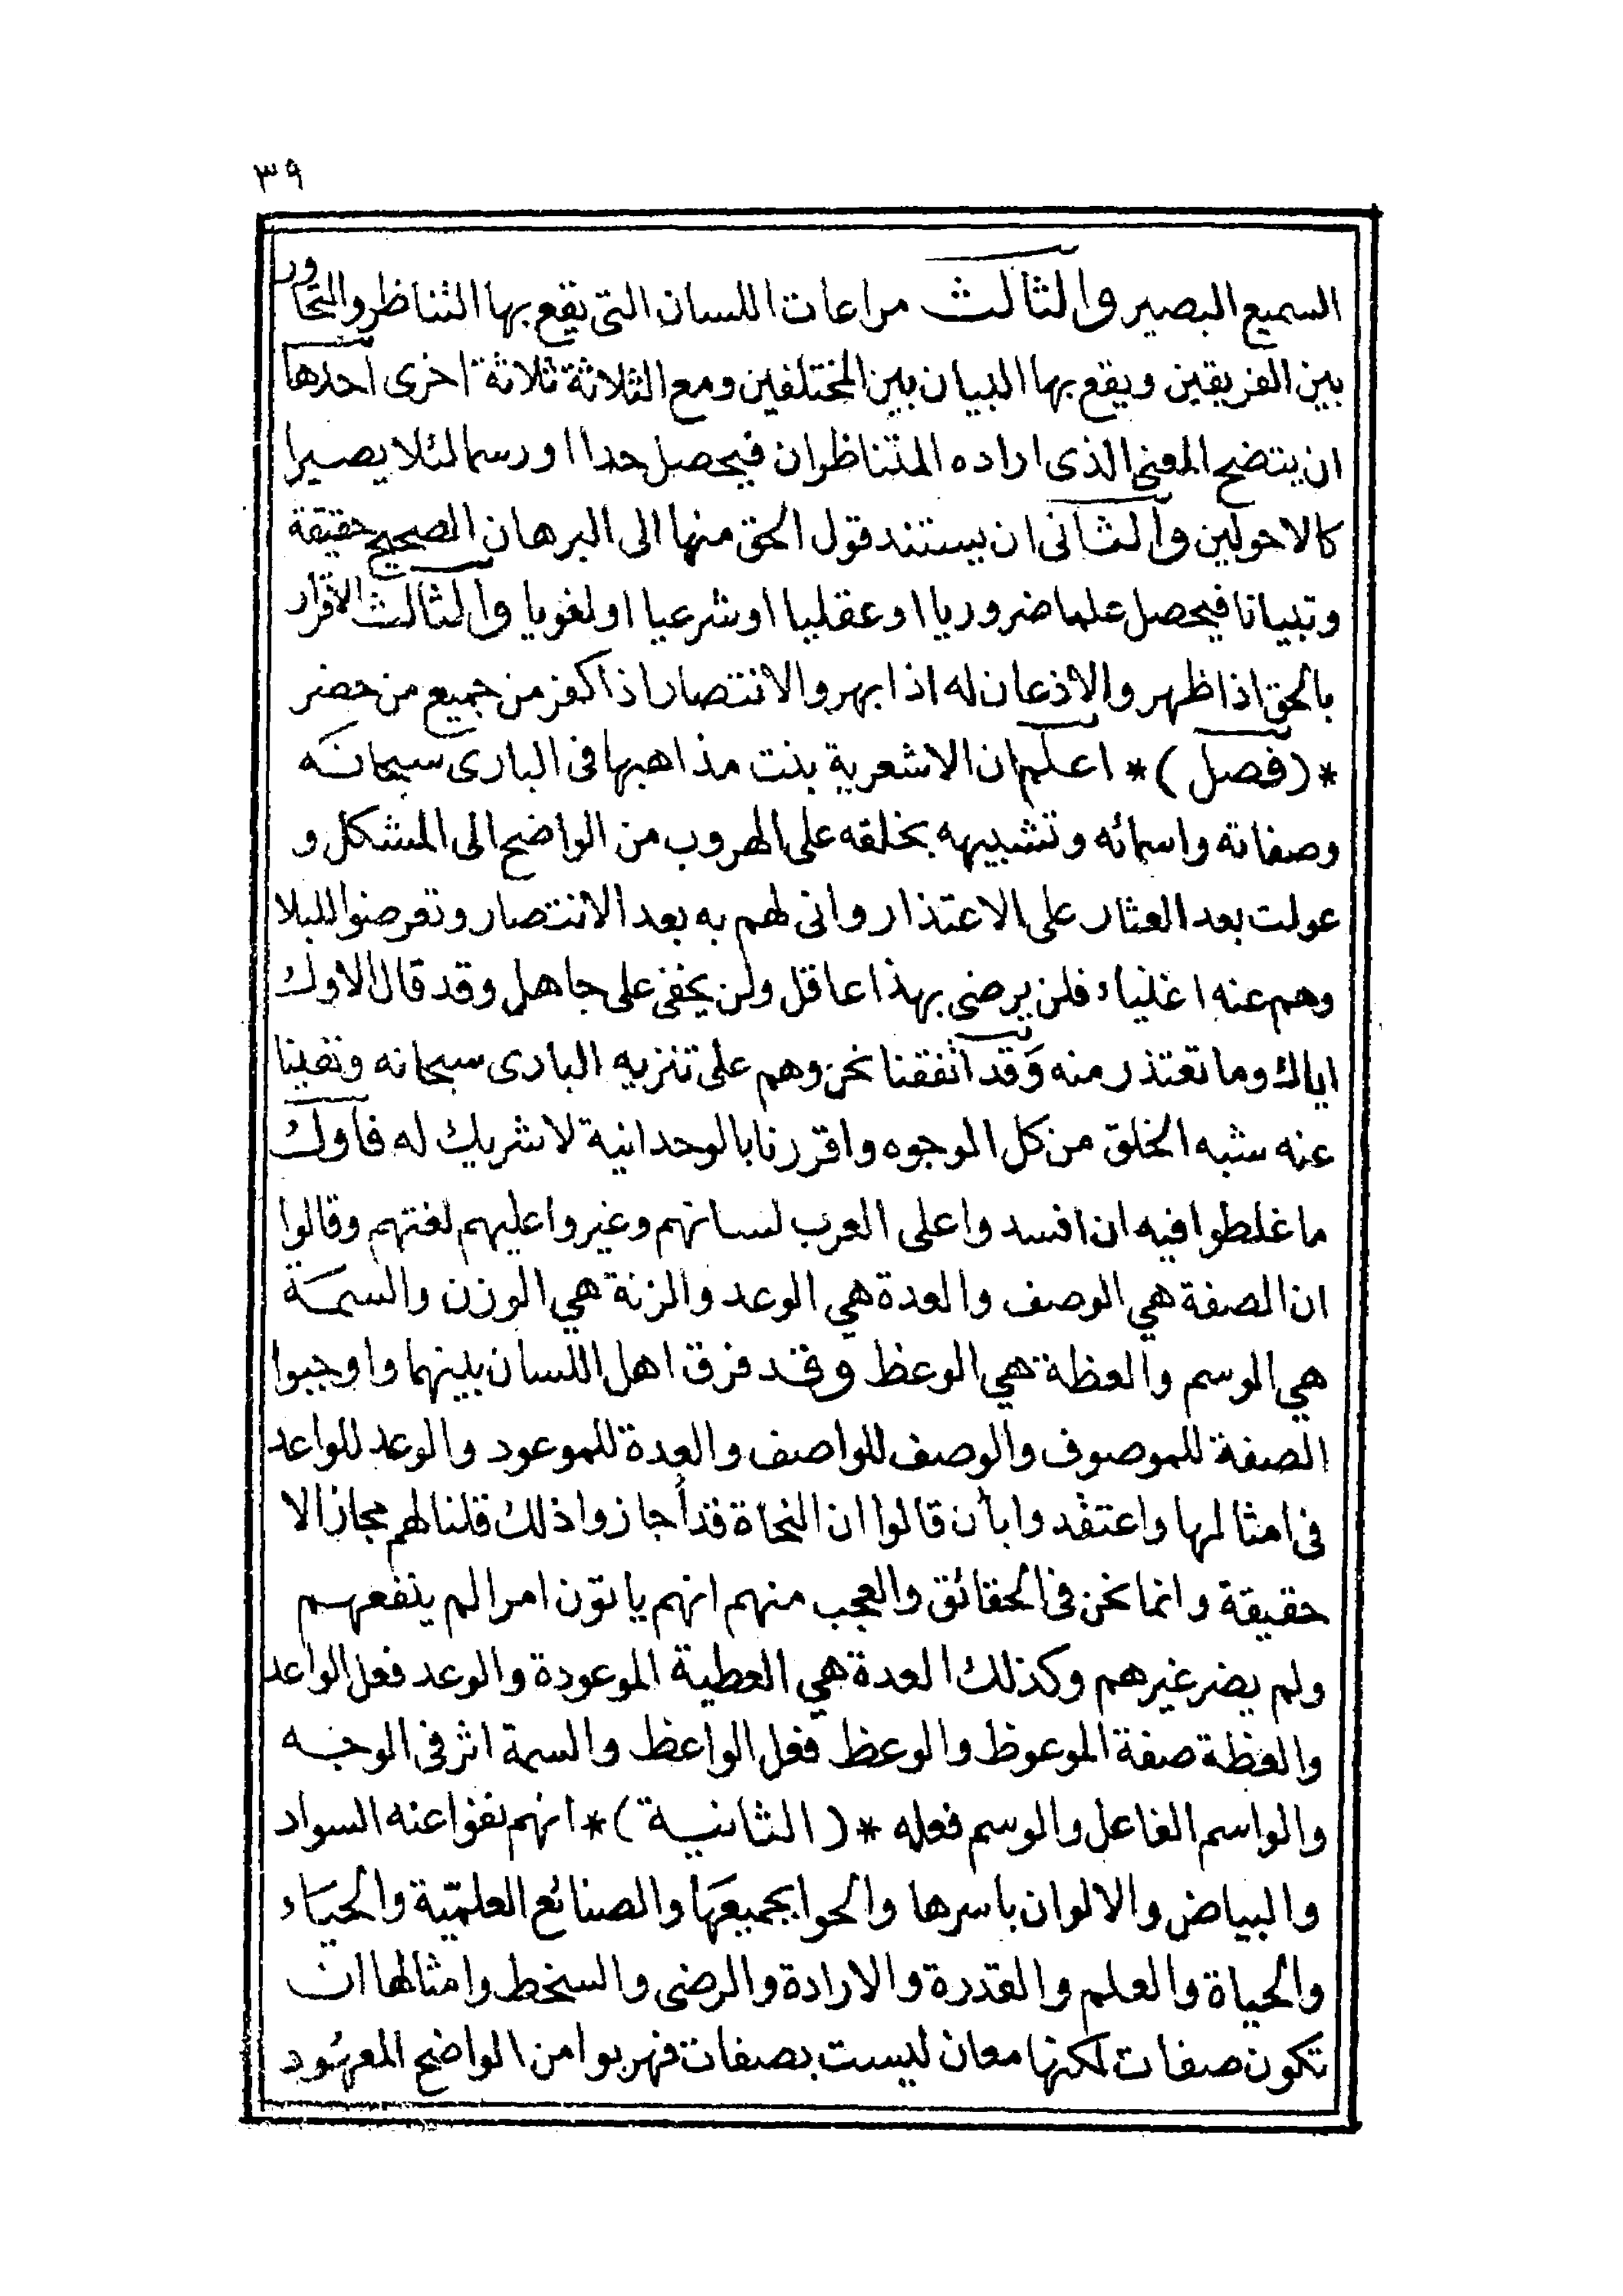 ٣٩
السميع البصير والثالث مراعات اللسان التى يقع بها التناظر والتحاور
بين الفريقين ويقع بها البيان بين المختلفين ومع الثلاثة ثلاثة اخرى احدها
ان يتضح المعنى الذى اراده المتناظران فيحصل حدا او رسما لئلا يصيرا
كالاحولين والثانى ان يستند قول الحق منها الى البرهان الصحيح حقيقة
وتبيانا فيحصل علما ضروريا او عقليا او شرعيا او لغويا والثالث الاقرار
بالحق اذا ظهر والاذعان له اذا بهر والانتصار اذا كفر من جميع من حضر
*(فصل)* اعلم ان الاشعرية بنت مذاهبها فى البارى سبحانه
وصفاته واسمائه وتشبيهه بخلقه على الهروب من الواضح الى المشكل و
عولت بعد العثار على الاعتذار وانى لهم به بعد الانتصار وتعرضوا للبلا
وهم عنه اغنياء فلن يرضى بهذا عاقل ولن يخفى على جاهل وقد قال الاول
اياك وما تعتذر منه وقد اتفقنا نحن وهم على تنزيه البارى سبحانه ونفينا
عنه شبه الخلق من كل الوجوه واقررنا بالوحدانية لا شريك له فاول
ما غلطوا فيه ان افسدوا على العرب لسانهم وغيروا عليهم لغتهم وقالوا
ان الصفة هي الوصف والعدة هي الوعد والزنة هي الوزن والسمة
هي الوسم والعظة هي الوعظ وقد فرق اهل اللسان بينهما واوجبوا
الصفة للموصوف والوصف للواصف والعدة للموعود والوعد للواعد
فى امثالها واعتقدوا بأن قالوا ان النحاة قد أجازوا ذلك قلنا لهم مجاز الا
حقيقة وانما نحن فى الحقائق والعجب منهم انهم ياتون امرا لم ينفعهم
ولم يضر غيرهم وكذلك العدة هي العطية الموعودة والوعد فعل الواعد
والعظة صفة الموعوظ والوعظ فعل الواعظ والسمة اثر فى الوجه
والواسم الفاعل والوسم فعله *(الثانية)* انهم نفوا عنه السواد
والبياض والالوان باسرها والحوا بجميعها والصنائع العلميّة والحياء
والحياة والعلم والقدرة والارادة والرضى والسخط وامثالها ان
تكون صفات لكنها معان ليست بصفات فهربوا من الواضح المعهود